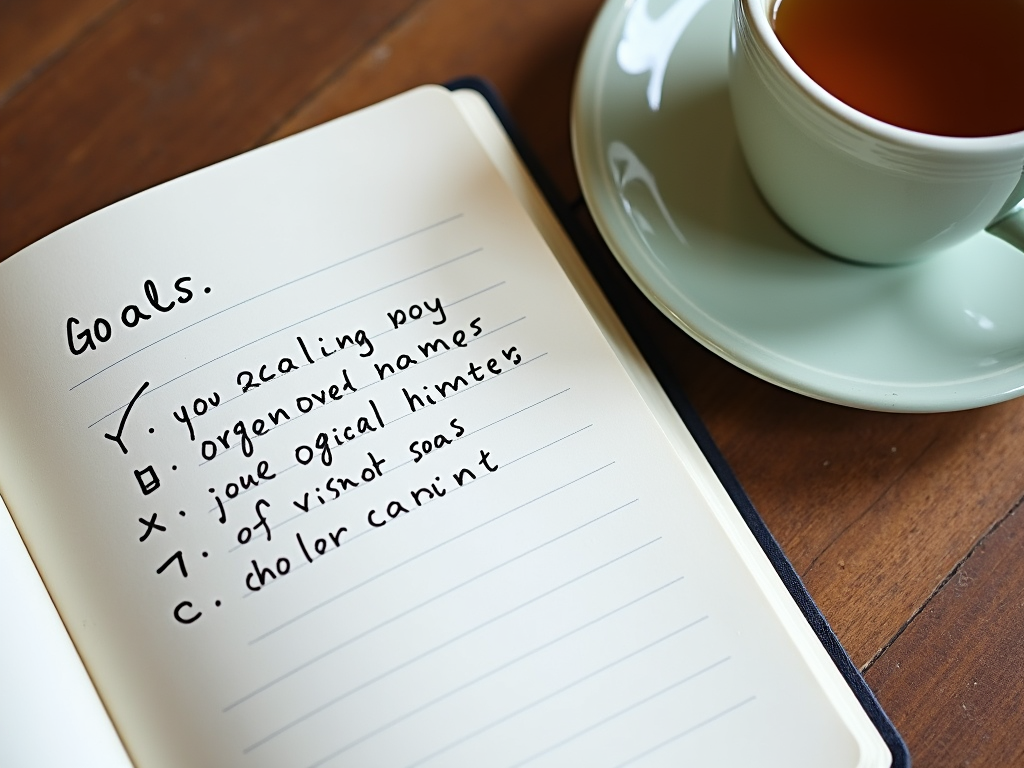 Goals.
you scaling poy
orgenoved names
joue ogical himters
of visnot soas
c. cholor canint